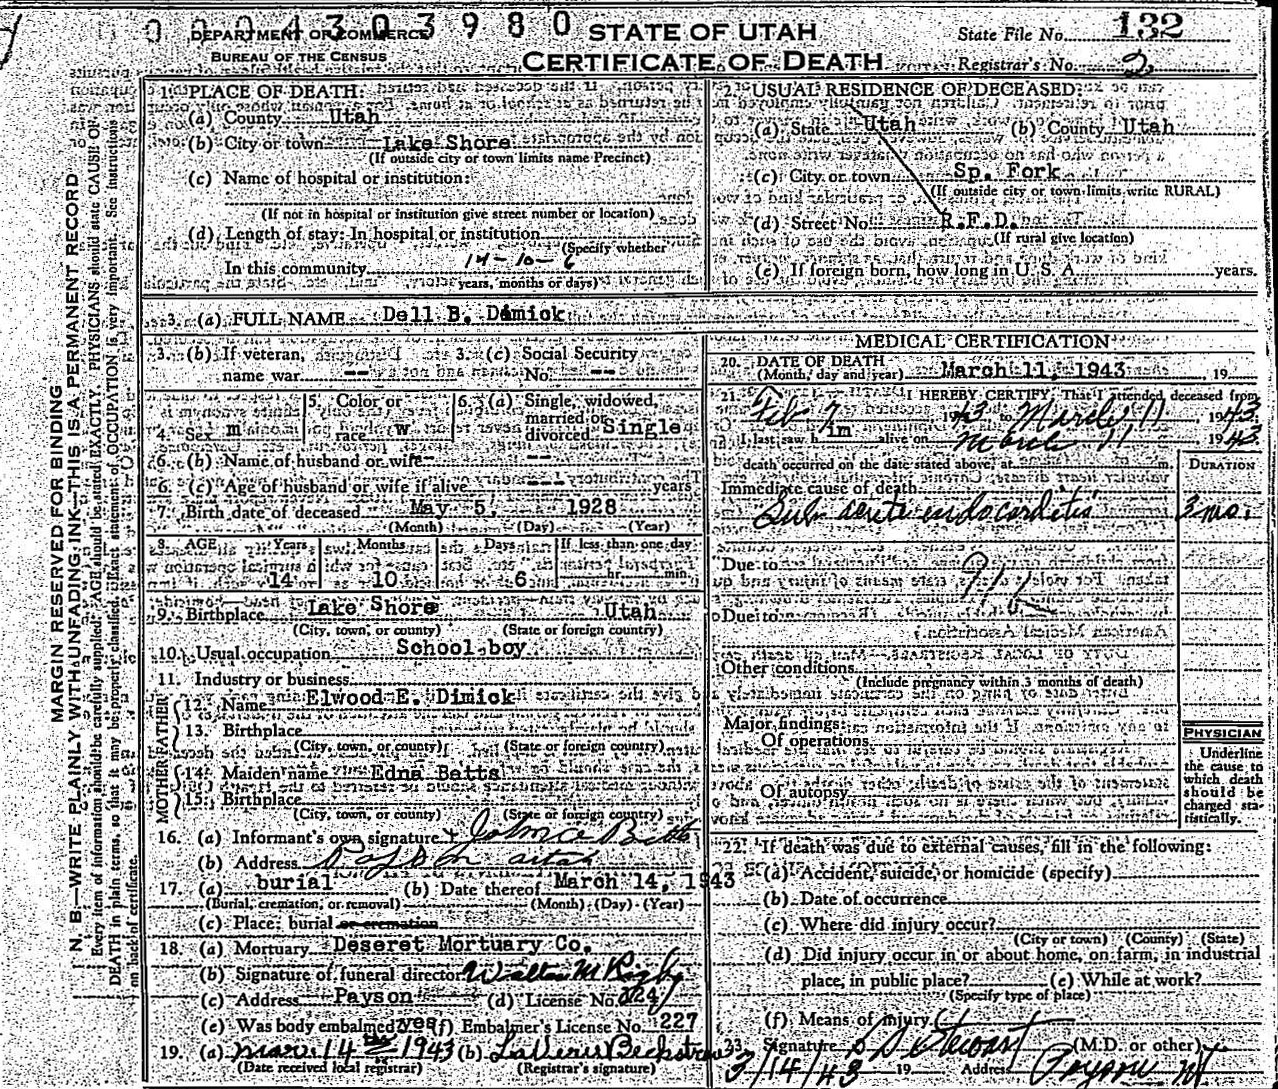 0004303980
DEPARTMENT OF COMMERCE
BUREAU OF THE CENSUS
STATE OF UTAH
CERTIFICATE OF DEATH
State File No. 132
Registrar's No. 2
MARGIN RESERVED FOR BINDING
N. B.—WRITE PLAINLY WITH UNFADING INK—THIS IS A PERMANENT RECORD
Every item of information should be carefully supplied. AGE should be stated EXACTLY. PHYSICIANS should state CAUSE OF
DEATH in plain terms, so that it may be properly classified. Exact statement of OCCUPATION is very important. See instructions
on back of certificate.
1. PLACE OF DEATH:
(a) County Utah
(b) City or town Lake Shore
(If outside city or town limits name Precinct)
(c) Name of hospital or institution:
(If not in hospital or institution give street number or location)
(d) Length of stay: In hospital or institution
(Specify whether
In this community 14-10-6
years, months or days)
2. USUAL RESIDENCE OF DECEASED:
(a) State Utah (b) County Utah
(c) City or town Sp. Fork
(If outside city or town limits write RURAL)
(d) Street No. R.F.D.
(If rural give location)
(e) If foreign born, how long in U. S. A. years.
3. (a) FULL NAME Dell B. Dimick
3. (b) If veteran, name war --
3. (c) Social Security No. --
4. Sex m
5. Color or race w
6. (a) Single, widowed, married or divorced Single
6. (b) Name of husband or wife --
6. (c) Age of husband or wife if alive --- years
7. Birth date of deceased May 5, 1928
(Month) (Day) (Year)
8. AGE Years Months Days If less than one day
14 10 6 hr. min.
9. Birthplace Lake Shore Utah
(City, town, or county) (State or foreign country)
10. Usual occupation School boy
11. Industry or business
FATHER
12. Name Elwood E. Dimick
13. Birthplace
(City, town, or county) (State or foreign country)
MOTHER
14. Maiden name Edna Betts
15. Birthplace
(City, town, or county) (State or foreign country)
16. (a) Informant's own signature Betts
(b) Address Payson Utah
17. (a) burial (b) Date thereof March 14, 1943
(Burial, cremation, or removal) (Month) (Day) (Year)
(c) Place: burial or cremation
18. (a) Mortuary Deseret Mortuary Co.
(b) Signature of funeral director Walter M
(c) Address Payson (d) License No.
(e) Was body embalmed? yes (f) Embalmer's License No. 227
19. (a) Mar. 14 1943 (b) LaVerne Beckstrom
(Date received local registrar) (Registrar's signature)
MEDICAL CERTIFICATION
20. DATE OF DEATH
(Month, day and year) March 11, 1943, 19
21. I HEREBY CERTIFY, That I attended deceased from
Feb 7 1943 to March 11 1943
I last saw h im alive on March 11 1943
death occurred on the date stated above, at m.
DURATION
Immediate cause of death
Sub acute endocarditis 3 mo.
Due to
Due to
Other conditions
(Include pregnancy within 3 months of death)
Major findings:
Of operations
Of autopsy
PHYSICIAN
Underline
the cause to
which death
should be
charged sta-
tistically.
22. If death was due to external causes, fill in the following:
(a) Accident, suicide, or homicide (specify)
(b) Date of occurrence
(c) Where did injury occur?
(City or town) (County) (State)
(d) Did injury occur in or about home, on farm, in industrial
place, in public place? (e) While at work?
(Specify type of place)
(f) Means of injury
23. Signature Stewart (M.D. or other)
3/14/43 19 Address Payson